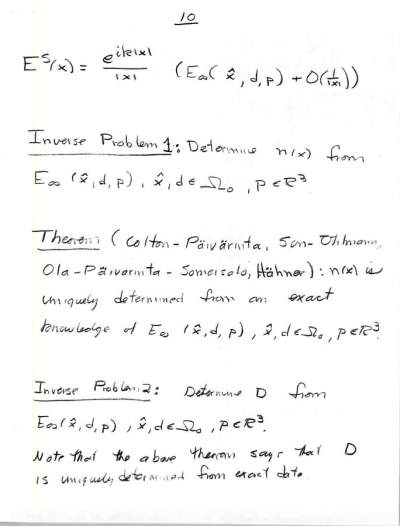 10
E^s(x) = e^{ik|x|} / |x| (E_∞(x̂, d, p) + O(1/|x|))
Inverse Problem 1: Determine n(x) from
E_∞ (x̂, d, p), x̂, d ∈ Ω_0, p ∈ ℝ^3
Theorem (Colton-Päivärinta, Sun-Uhlmann,
Ola-Päivarinta-Somersalo, Hähner): n(x) is
uniquely determined from an exact
knowledge of E_∞ (x̂, d, p), x̂, d ∈ Ω_0, p ∈ ℝ^3.
Inverse Problem 2: Determine D from
E_∞(x̂, d, p), x̂, d ∈ Ω_0, p ∈ ℝ^3.
Note that the above theorem says that D
is uniquely determined from exact data.